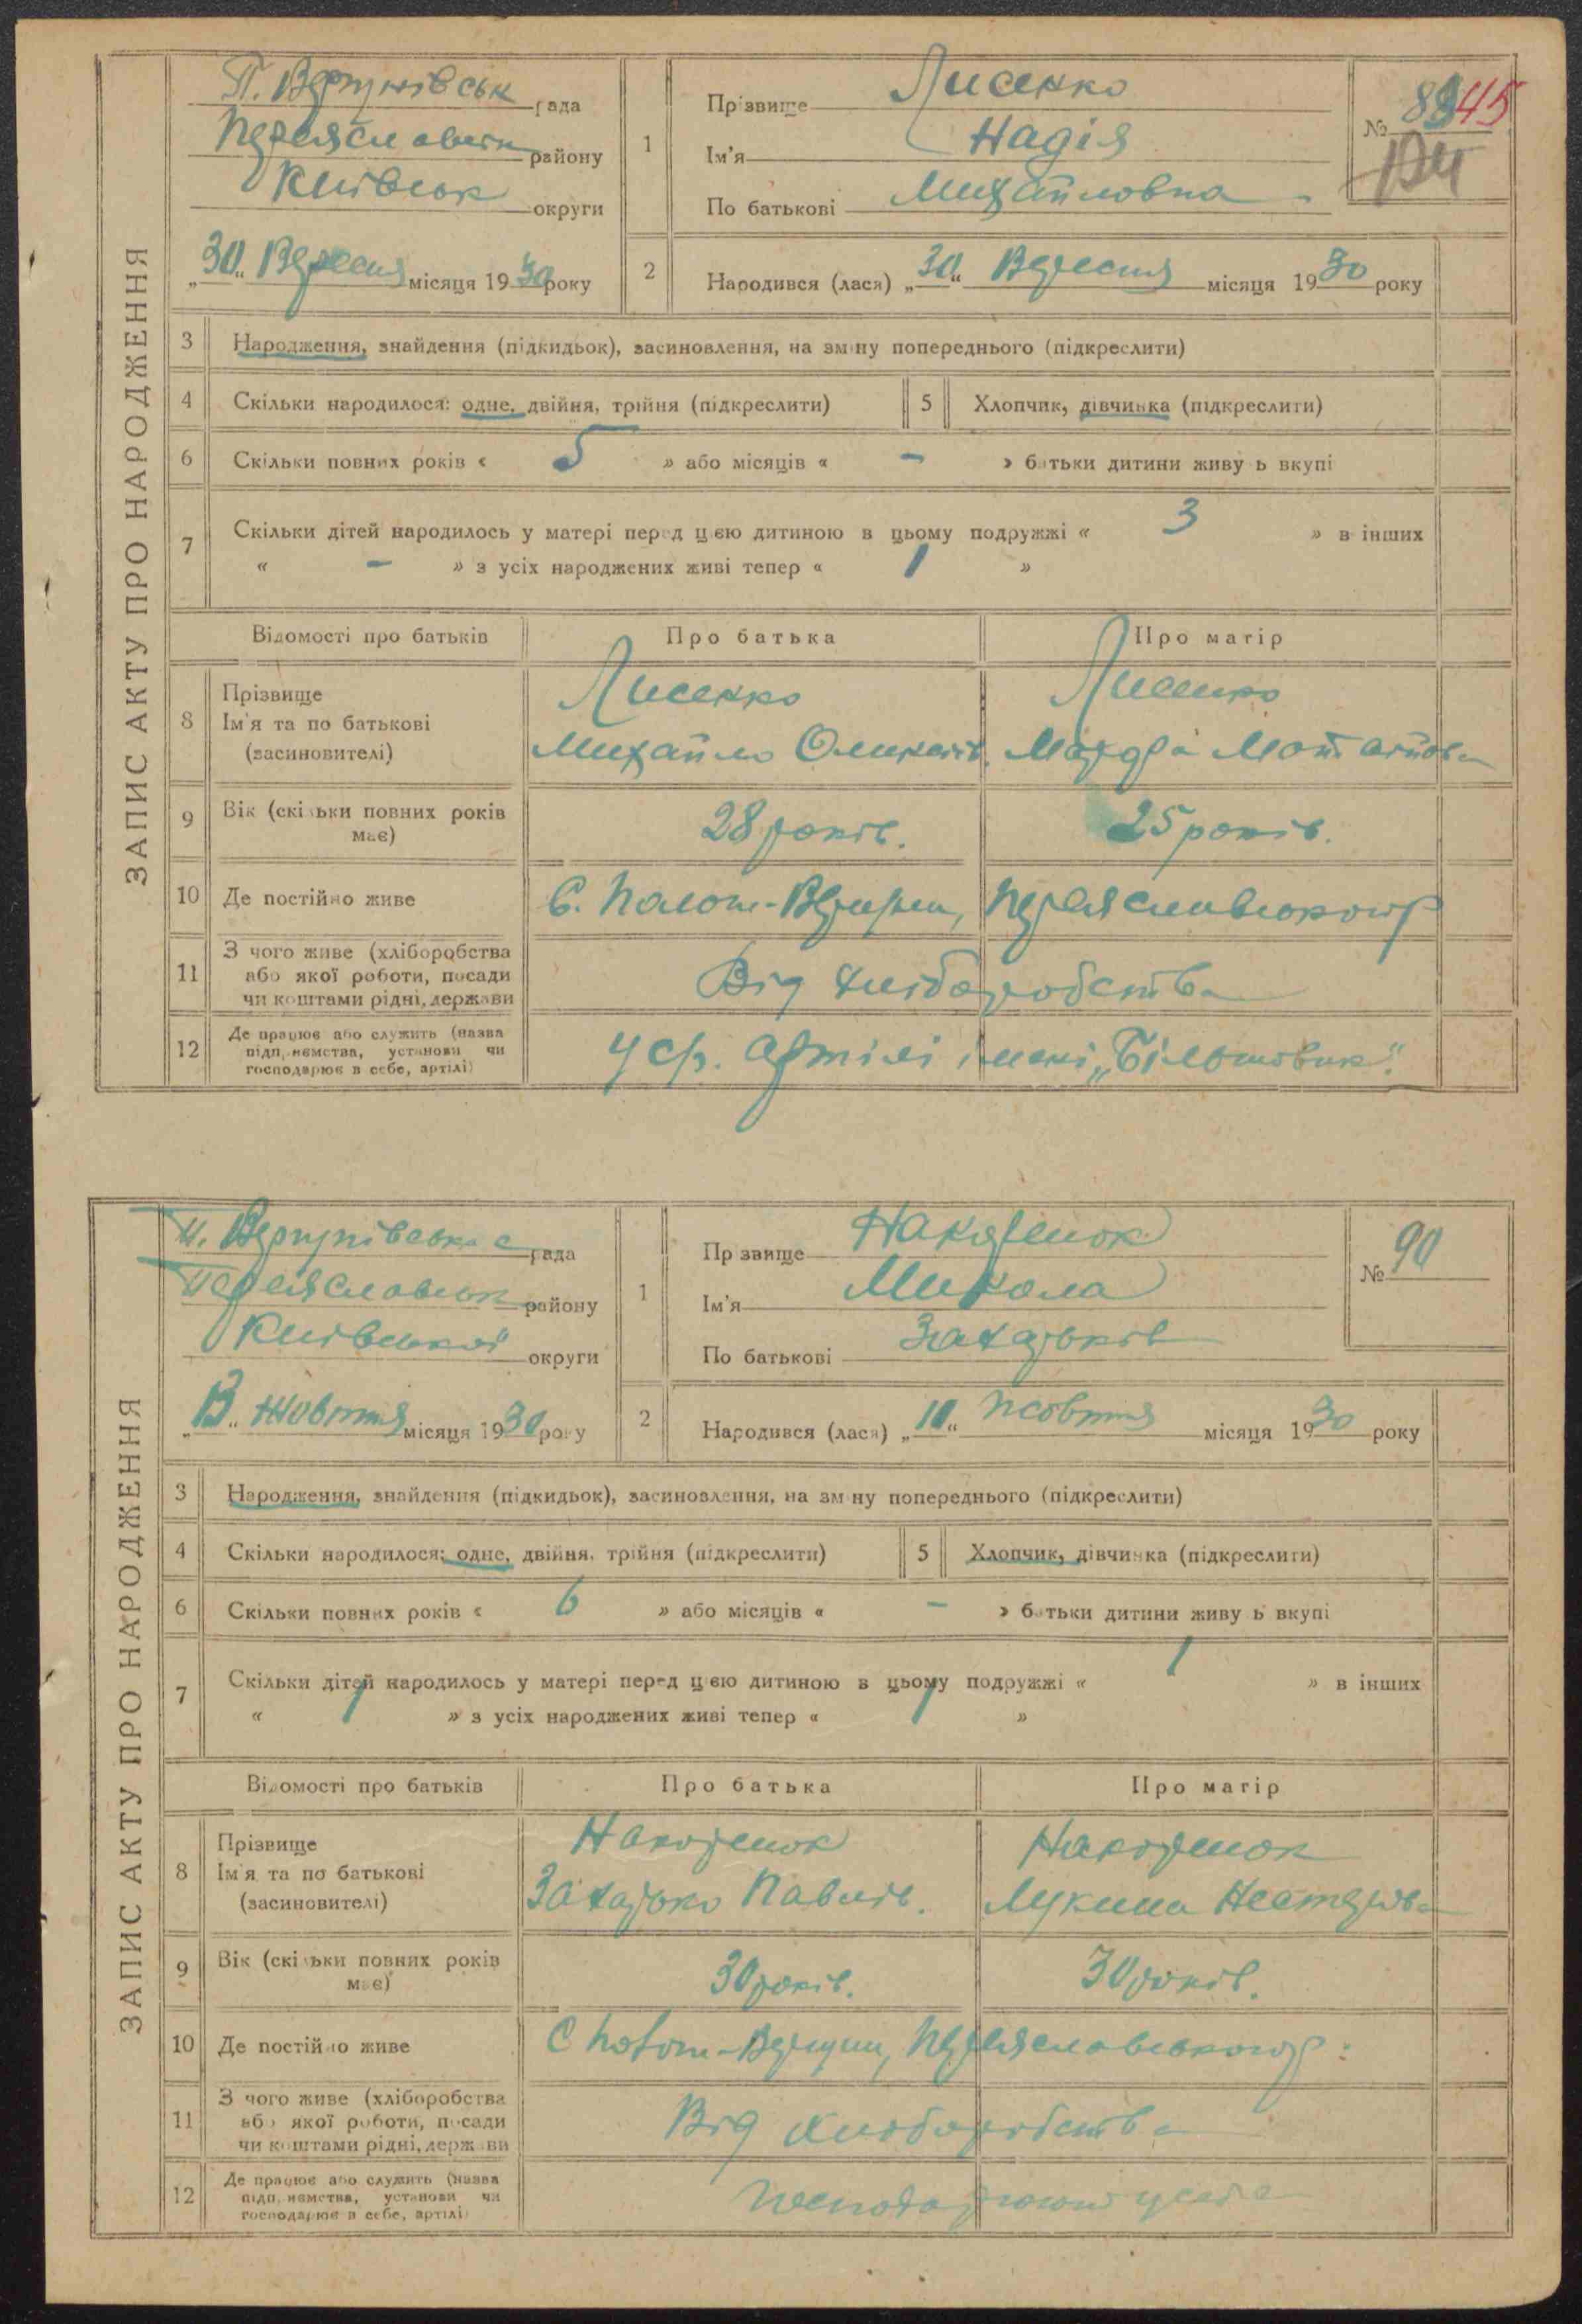 ЗАПИС АКТУ ПРО НАРОДЖЕННЯ
рада
району
Київськ округи
„30“ Вересня місяця 1930 року
1
Прізвище Лисенко
Ім'я Надія
По батькові Михайловна
№ 89 45
2
Народився (лася) „30“ Вересня місяця 1930 року
3 Народження, знайдення (підкидьок), засиновлення, на зміну попереднього (підкреслити)
4 Скільки народилося: одне, двійня, трійня (підкреслити) 5 Хлопчик, дівчинка (підкреслити)
6 Скільки повних років « 5 » або місяців « - » батьки дитини живуть вкупі
7 Скільки дітей народилось у матері перед цією дитиною в цьому подружжі « 3 » в інших
« - » з усіх народжених живі тепер « 1 »
Відомості про батьків Про батька Про матір
8 Прізвище
Ім'я та по батькові
(засиновителі)
Лисенко Лисенко
Михайло
9 Вік (скільки повних років має) 28 років. 25 років.
10 Де постійно живе
11 З чого живе (хліборобства
або якої роботи, посади
чи коштами рідні, держави
Від хліборобства
12 Де працює або служить (назва
підприємства, установи чи
господарює в себе, артілі)
У с/г. артілі імені „Більшовик“.
ЗАПИС АКТУ ПРО НАРОДЖЕННЯ
рада
району
Київської округи
місяця 1930 року
1
Прізвище
Ім'я Микола
По батькові Захарків
№ 90
2
Народився (лася) „10“ жовтня місяця 1930 року
3 Народження, знайдення (підкидьок), засиновлення, на зміну попереднього (підкреслити)
4 Скільки народилося: одне, двійня, трійня (підкреслити) 5 Хлопчик, дівчинка (підкреслити)
6 Скільки повних років « 6 » або місяців « - » батьки дитини живуть вкупі
7 Скільки дітей народилось у матері перед цією дитиною в цьому подружжі « 1 » в інших
« / » з усіх народжених живі тепер « / »
Відомості про батьків Про батька Про матір
8 Прізвище
Ім'я та по батькові
(засиновителі)
Захарко Павлів. Лукина
9 Вік (скільки повних років має) 30 років. 30 років.
10 Де постійно живе
11 З чого живе (хліборобства
або якої роботи, посади
чи коштами рідні, держави
Від хліборобства
12 Де працює або служить (назва
підприємства, установи чи
господарює в себе, артілі)